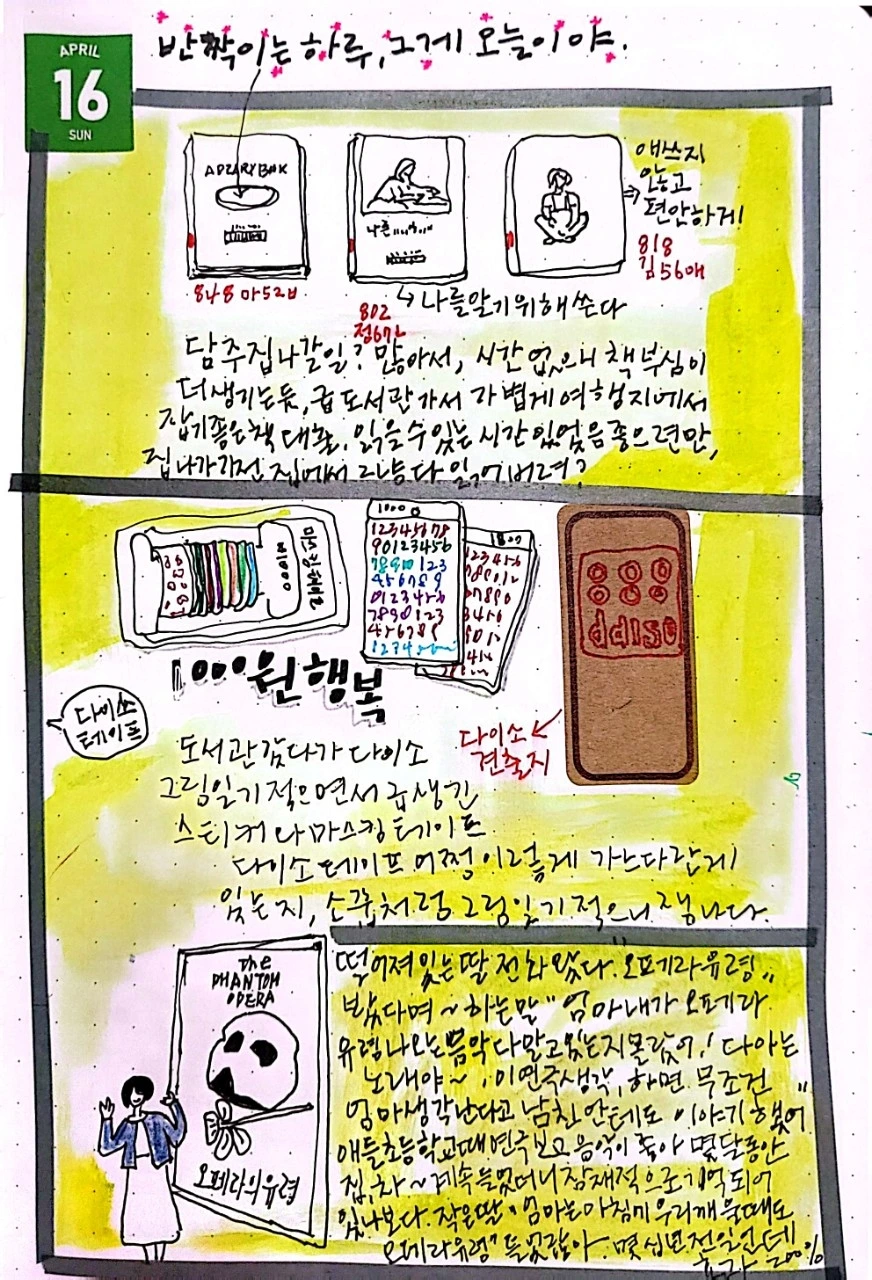 APRIL
16
SUN
반짝이는 하루, 그게 오늘이야.
A DIARY BOOK
848 마52ㅂ
나른
802
정67ㄴ
나를알기위해쓴다
애쓰지
않고
편안하게!
818
김56애
담주집나갈일? 많아서, 시간 없으니 책 부심이
더생기는듯, 급 도서관 가서 가볍게 여행지에서
잡기좋은책 대출. 읽을수있는 시간있었음 좋으련만,
집나가기전 집에서 그냥 다 읽어버려?
마스킹테이프
₩1000
1000
12345678
90123456
1000
1000원 행복
다이쏘
테이프
다이소
견출지
도서관 갔다가 다이소
그림일기 적으면서 급생긴
스티커 와 마스킹 테이프
다이소 테이프 어쩜 이렇게 가느다랗게
있는지, 소꿉처럼 그림일기 적으니 잼나다.
the
PHANTOM
OPERA
오페라의유령
떨어져있는 딸 전화 왔다. "오페라유령"
봤다며~ 하는말 "엄마 내가 오페라
유령 나오는 음악 다 알고있는지 몰랐어! 다 아는
노래야~, 이 연극생각, 하면 무조건
엄마생각난다고 남친 안테도 이야기 했어"
애들초등학교때 연극보고 음악이 좋아 몇달동안
집, 차~ 계속 들었더니 잠재적으로 기억되어
있나보다. 작은딸 "엄마는 아침에 우리깨울때도
오페라유령" 들었잖아. 몇 십년전일인데
효과 200%